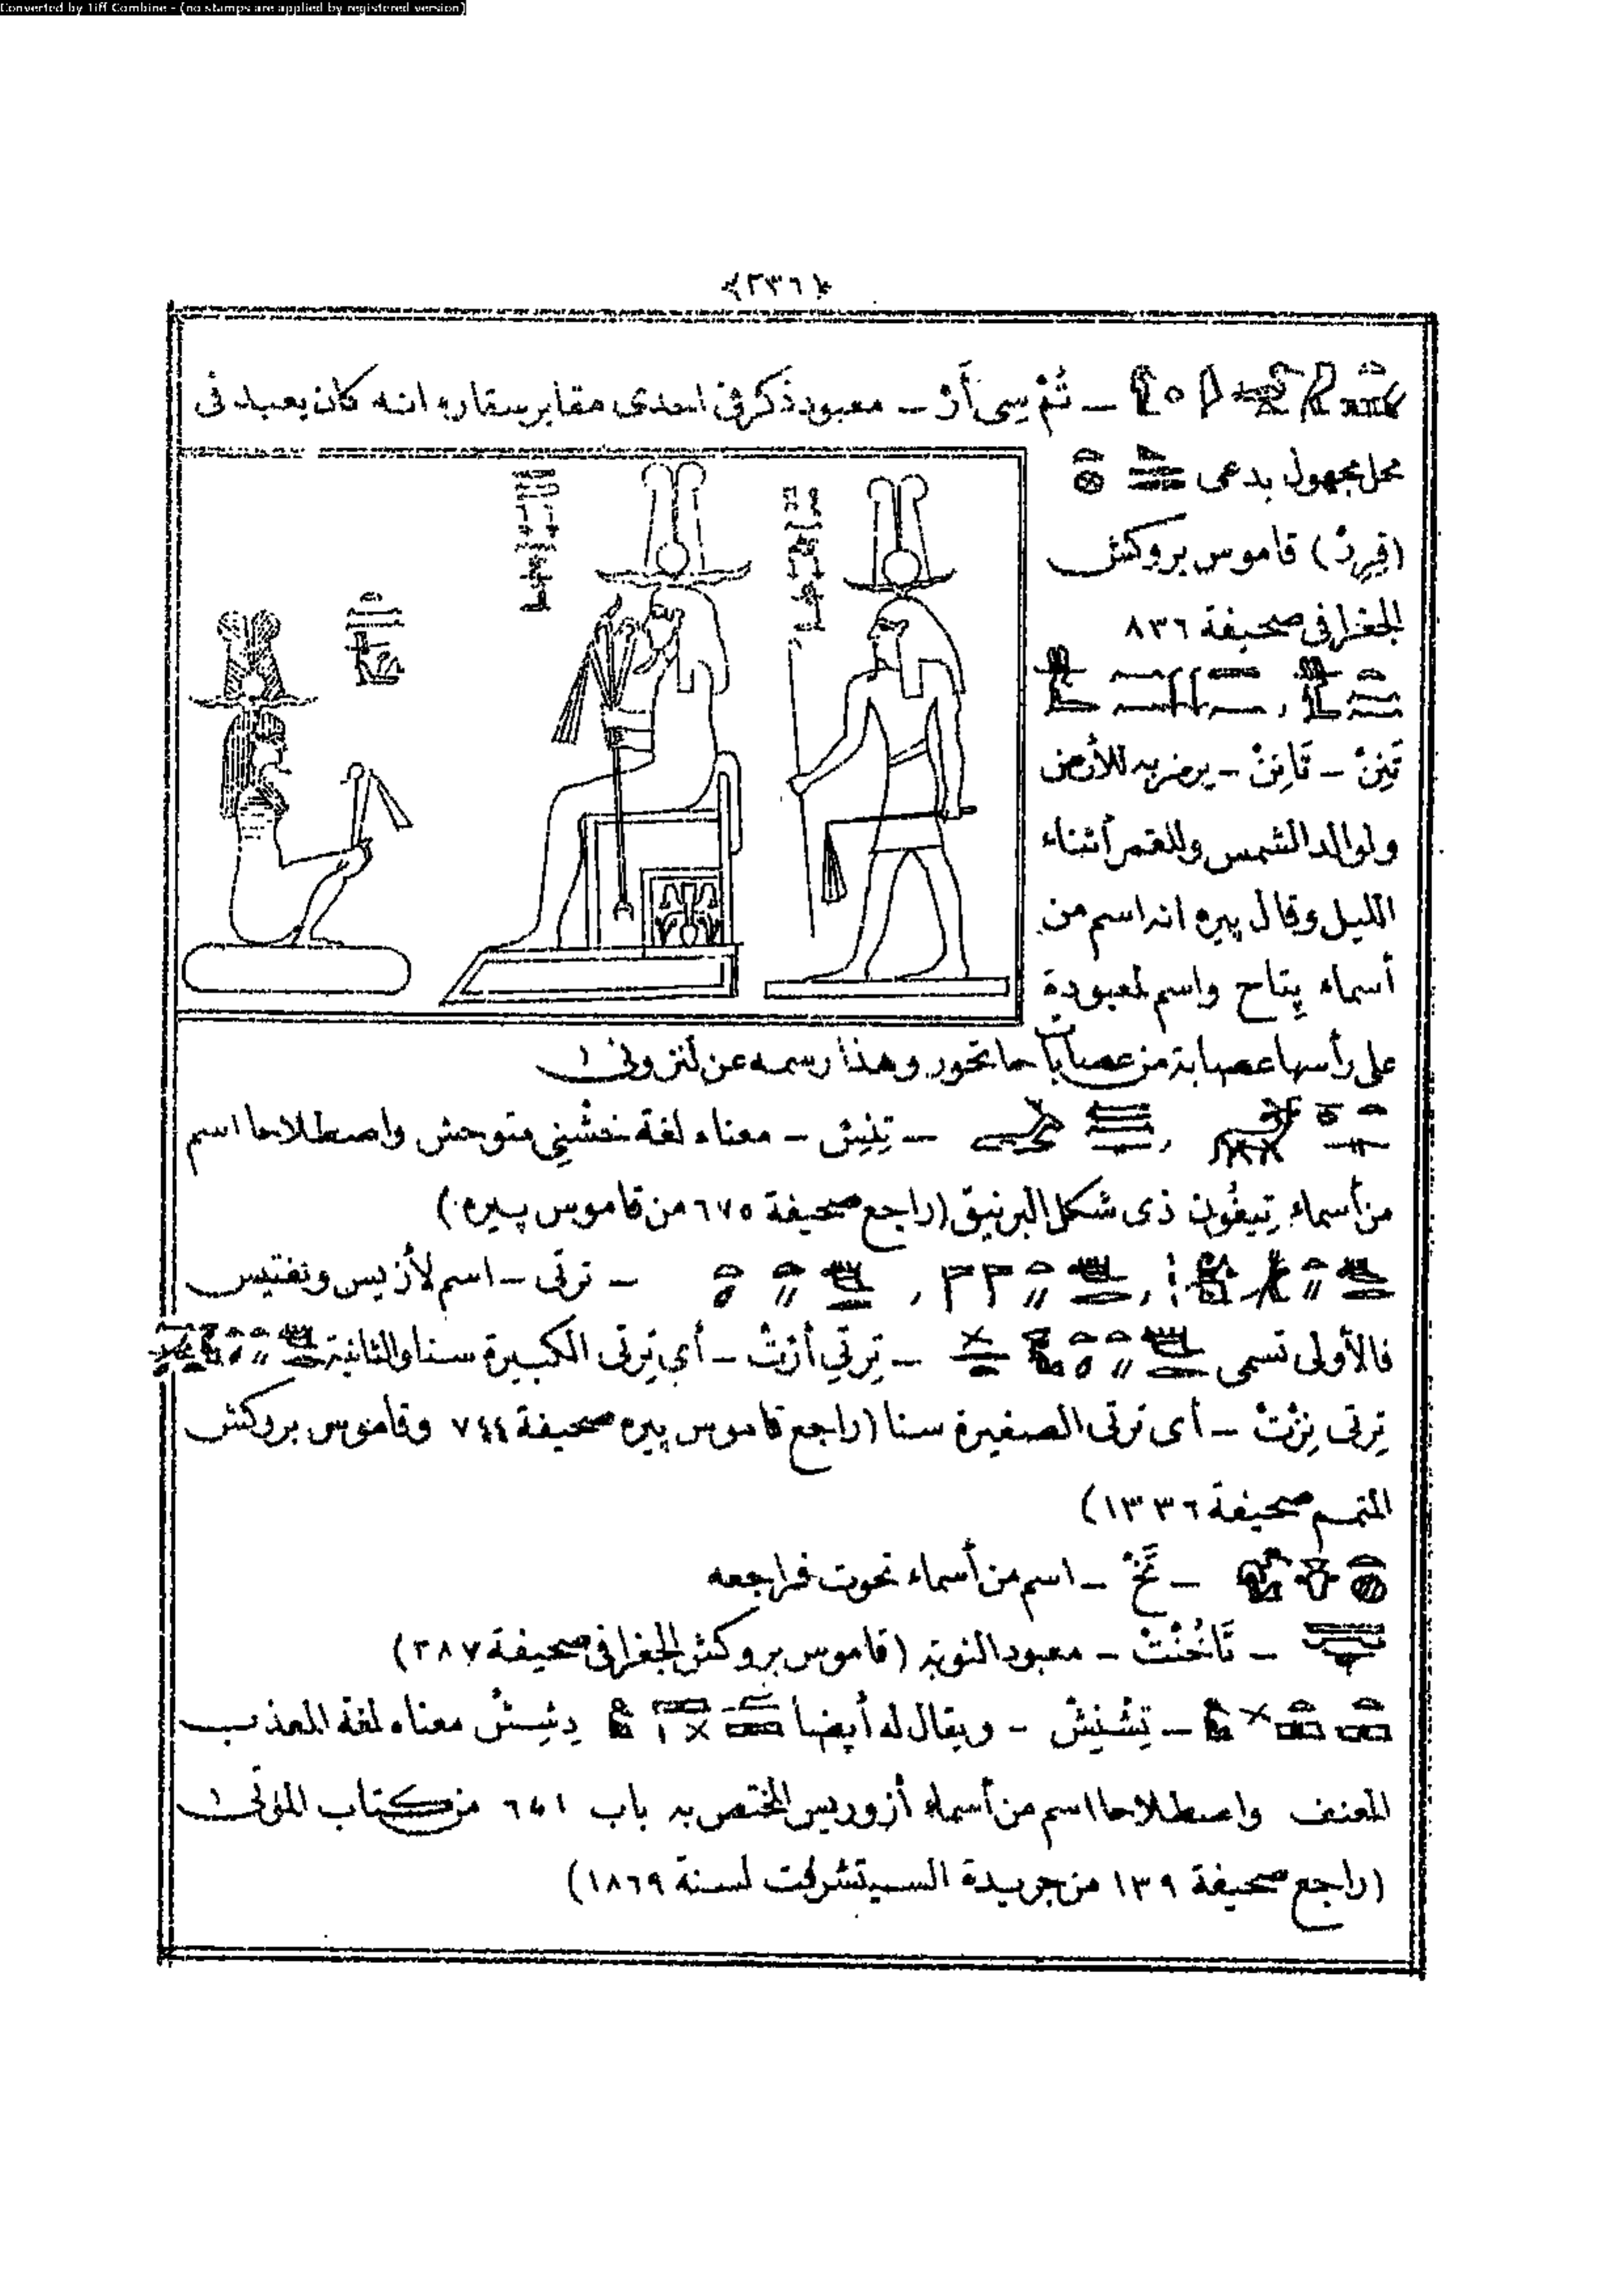 Converted by Tiff Combine - (no stamps are applied by registered version)
﴿٢٣٦﴾
ـ تُمْ سِى أَرْ ـ معبود ذكر فى احدى مقابر سقاره انه كان يعبد فى
محل مجهول يدعى
قاموس بروكش
الجغرافى صحيفة ٨٣٦
تَنِنْ ـ تَانِنْ ـ يرمز به للأرض
ولوالد الشمس وللقمر أثناء
الليل وقال پيره انه اسم من
أسماء پتاح واسم لمعبودة
على رأسها عصابة من عصابات حاتحور وهذا رسمه عن لنزونى
ـ تِنِش ـ معناه لغة خشنى متوحش واصطلاحا اسم
من أسماء تِيفُون ذى شكل البرنيق (راجع صحيفة ٦٧٥ من قاموس پيره)
ـ ترتى ـ اسم لأزيس ونفتيس
فالأولى تسمى ـ تِرتِي أَرْتْ ـ أى تِرتى الكبيرة سنا والثانية
تِرتى نِزْتْ ـ أى ترتى الصغيرة سنا (راجع قاموس پيره صحيفة ٧٤٤ وقاموس بروكش
المتمم صحيفة ١٣٣٦)
ـ تَخْ ـ اسم من أسماء تحوت فراجعه
ـ تَانُخْنْتْ ـ معبود النوبة (قاموس بروكش الجغرافى صحيفة ٣٨٧)
ـ تِشْتِشْ ـ ويقال له أيضا دِشِشْ معناه لغة المعذب
المعنف واصطلاحا اسم من أسماء أزوريس المختص به باب من كتاب الموتى
(راجع صحيفة ١٣٩ من جريدة السيتشرفت لسنة ١٨٦٩)